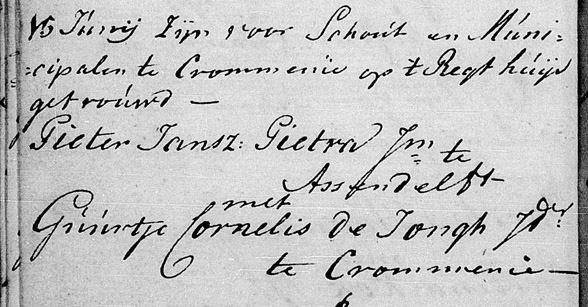 15 Junij Zijn voor Schout en Muni=
=cipalen te Crommenie op t Regthuijs
getrouwd —
Pieter Jansz: Pietra Jm te
Assendelft
met
Guurtje Cornelis de Jongh Jdr
te Crommenie —